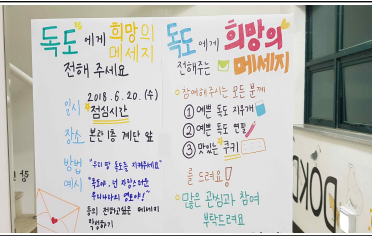 독도 에게 희망의
메세지
전해 주세요
일시 2018.6.20.(수)
점심시간
장소 본관 1층 계단 앞
방법 "우리 땅 독도를 지켜주세요"
예시 "독도야, 넌 자랑스러운
우리나라의 영토야!"
등의 전하고싶은 메세지
작성하기
독도 에게 희망의
전해주는 메세지
참여해주시는 모든 분께
① 예쁜 독도 지우개
② 예쁜 독도 연필
③ 맛있는 쿠키
를 드려요!
많은 관심과 참여
부탁드려요
DOKD